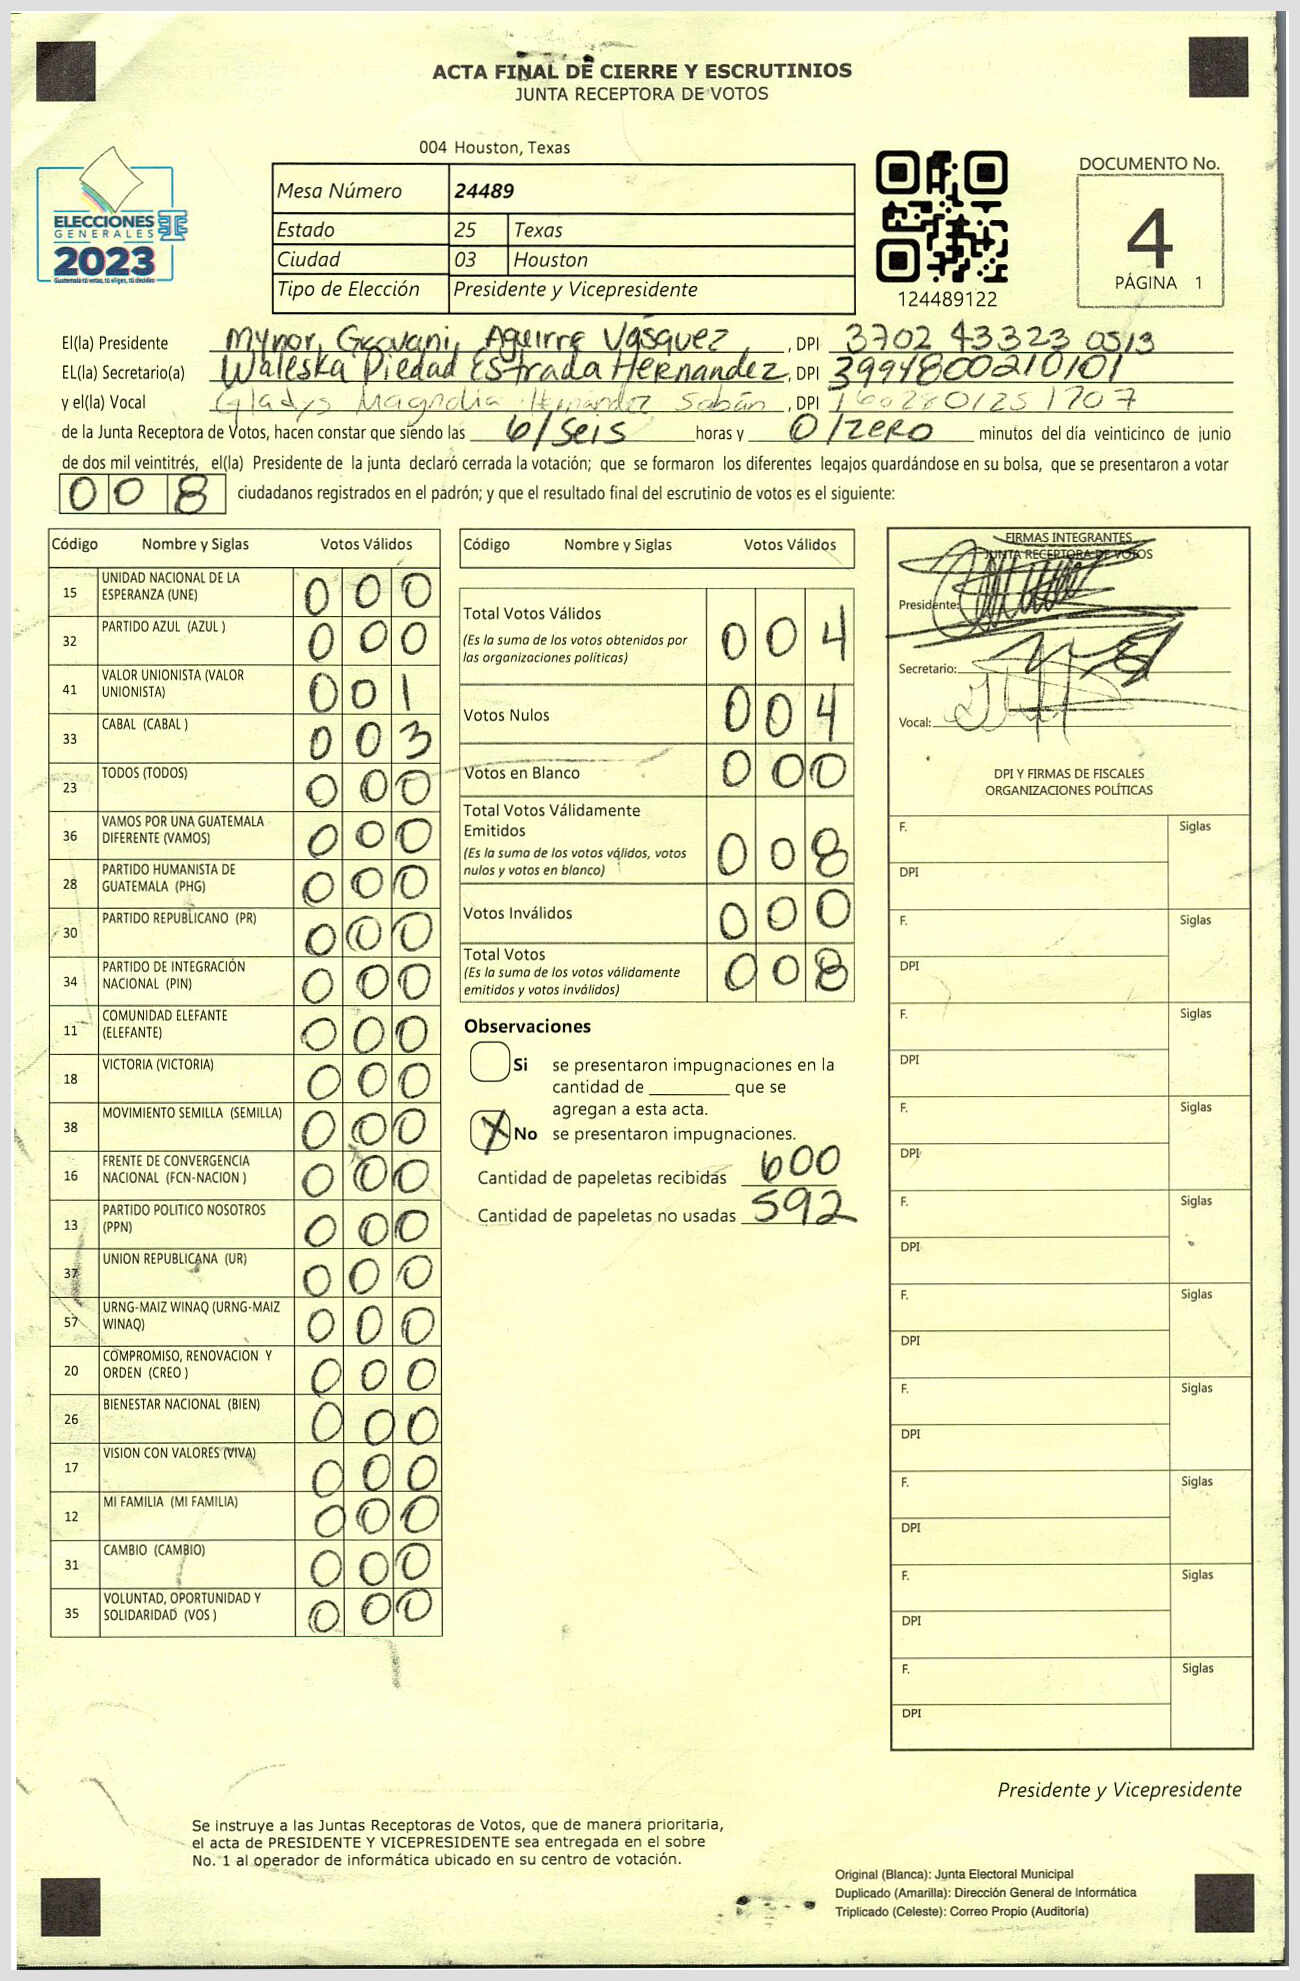 ACTA FINAL DE CIERRE Y ESCRUTINIOS
JUNTA RECEPTORA DE VOTOS
004 Houston, Texas
Mesa Número 24489
Estado 25 Texas
Ciudad 03 Houston
Tipo de Elección Presidente y Vicepresidente
ELECCIONES
GENERALES
2023
Guatemala tú votas, tú eliges, tú decides
124489122
DOCUMENTO No.
4
PÁGINA 1
El(la) Presidente Mynor, Geovani, Aguirre Vásquez, DPI 3702 43323 0513
EL(la) Secretario(a) Waleska Piedad Estrada Hernandez, DPI 3994800210101
y el(la) Vocal Gladys Magnolia Hernández Sabán, DPI 1602801251707
de la Junta Receptora de Votos, hacen constar que siendo las 6/seis horas y 0/zero minutos del día veinticinco de junio
de dos mil veintitrés, el(la) Presidente de la junta declaró cerrada la votación; que se formaron los diferentes legajos guardándose en su bolsa, que se presentaron a votar
008 ciudadanos registrados en el padrón; y que el resultado final del escrutinio de votos es el siguiente:
Código Nombre y Siglas Votos Válidos
15 UNIDAD NACIONAL DE LA
ESPERANZA (UNE) 000
32 PARTIDO AZUL (AZUL ) 000
41 VALOR UNIONISTA (VALOR
UNIONISTA) 001
33 CABAL (CABAL ) 003
23 TODOS (TODOS) 000
36 VAMOS POR UNA GUATEMALA
DIFERENTE (VAMOS) 000
28 PARTIDO HUMANISTA DE
GUATEMALA (PHG) 000
30 PARTIDO REPUBLICANO (PR) 000
34 PARTIDO DE INTEGRACIÓN
NACIONAL (PIN) 000
11 COMUNIDAD ELEFANTE
(ELEFANTE) 000
18 VICTORIA (VICTORIA) 000
38 MOVIMIENTO SEMILLA (SEMILLA) 000
16 FRENTE DE CONVERGENCIA
NACIONAL (FCN-NACION ) 000
13 PARTIDO POLITICO NOSOTROS
(PPN) 000
37 UNION REPUBLICANA (UR) 000
57 URNG-MAIZ WINAQ (URNG-MAIZ
WINAQ) 000
20 COMPROMISO, RENOVACION Y
ORDEN (CREO ) 000
26 BIENESTAR NACIONAL (BIEN) 000
17 VISION CON VALORES (VIVA) 000
12 MI FAMILIA (MI FAMILIA) 000
31 CAMBIO (CAMBIO) 000
35 VOLUNTAD, OPORTUNIDAD Y
SOLIDARIDAD (VOS ) 000
Código Nombre y Siglas Votos Válidos
Total Votos Válidos 004
(Es la suma de los votos obtenidos por
las organizaciones políticas)
Votos Nulos 004
Votos en Blanco 000
Total Votos Válidamente
Emitidos 008
(Es la suma de los votos válidos, votos
nulos y votos en blanco)
Votos Inválidos 000
Total Votos 008
(Es la suma de los votos válidamente
emitidos y votos inválidos)
Observaciones
Si se presentaron impugnaciones en la
cantidad de ________ que se
agregan a esta acta.
X No se presentaron impugnaciones.
Cantidad de papeletas recibidas 600
Cantidad de papeletas no usadas 592
FIRMAS INTEGRANTES
JUNTA RECEPTORA DE VOTOS
Presidente:
Secretario:
Vocal:
DPI Y FIRMAS DE FISCALES
ORGANIZACIONES POLÍTICAS
F. Siglas
DPI
F. Siglas
DPI
F. Siglas
DPI
F. Siglas
DPI
F. Siglas
DPI
F. Siglas
DPI
F. Siglas
DPI
F. Siglas
DPI
F. Siglas
DPI
F. Siglas
DPI
Presidente y Vicepresidente
Se instruye a las Juntas Receptoras de Votos, que de manera prioritaria,
el acta de PRESIDENTE Y VICEPRESIDENTE sea entregada en el sobre
No. 1 al operador de informática ubicado en su centro de votación.
Original (Blanca): Junta Electoral Municipal
Duplicado (Amarilla): Dirección General de Informática
Triplicado (Celeste): Correo Propio (Auditoría)